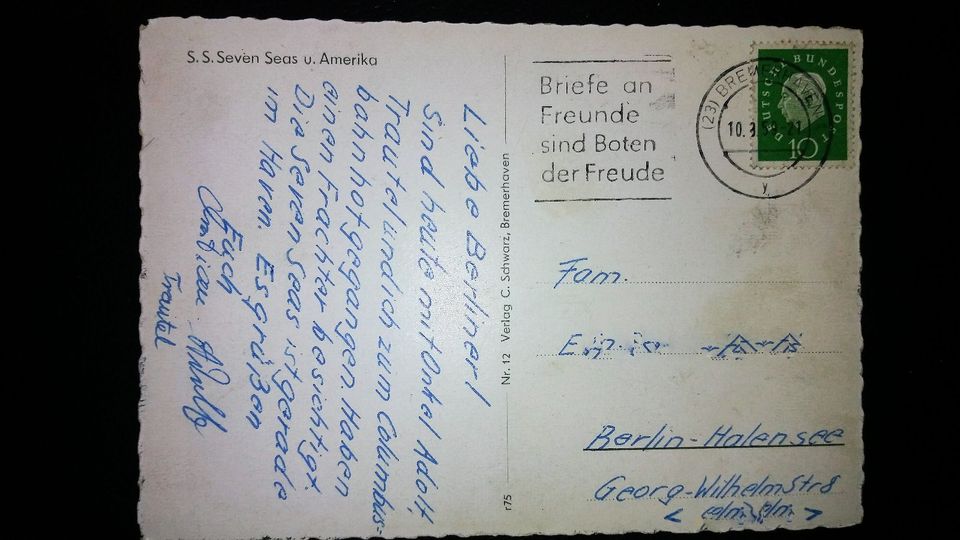 S. S. Seven Seas u. Amerika
Liebe Berliner!
Sind heute mit Onkel Adolf,
Trautel und ich zum Columbus-
bahnhof gegangen. Haben
einen Frachter besichtigt.
Die Seven Seas ist gerade
im Haven. Es grüßen
Euch
Trautel
Nr. 12 Verlag C. Schwarz, Bremerhaven
r75
Briefe an
Freunde
sind Boten
der Freude
(23) BREMERHAVEN
10. 3. -21
y
DEUTSCHE BUNDESPOST
10
Fam.
Berlin-Halensee
Georg-Wilhelmstr 8